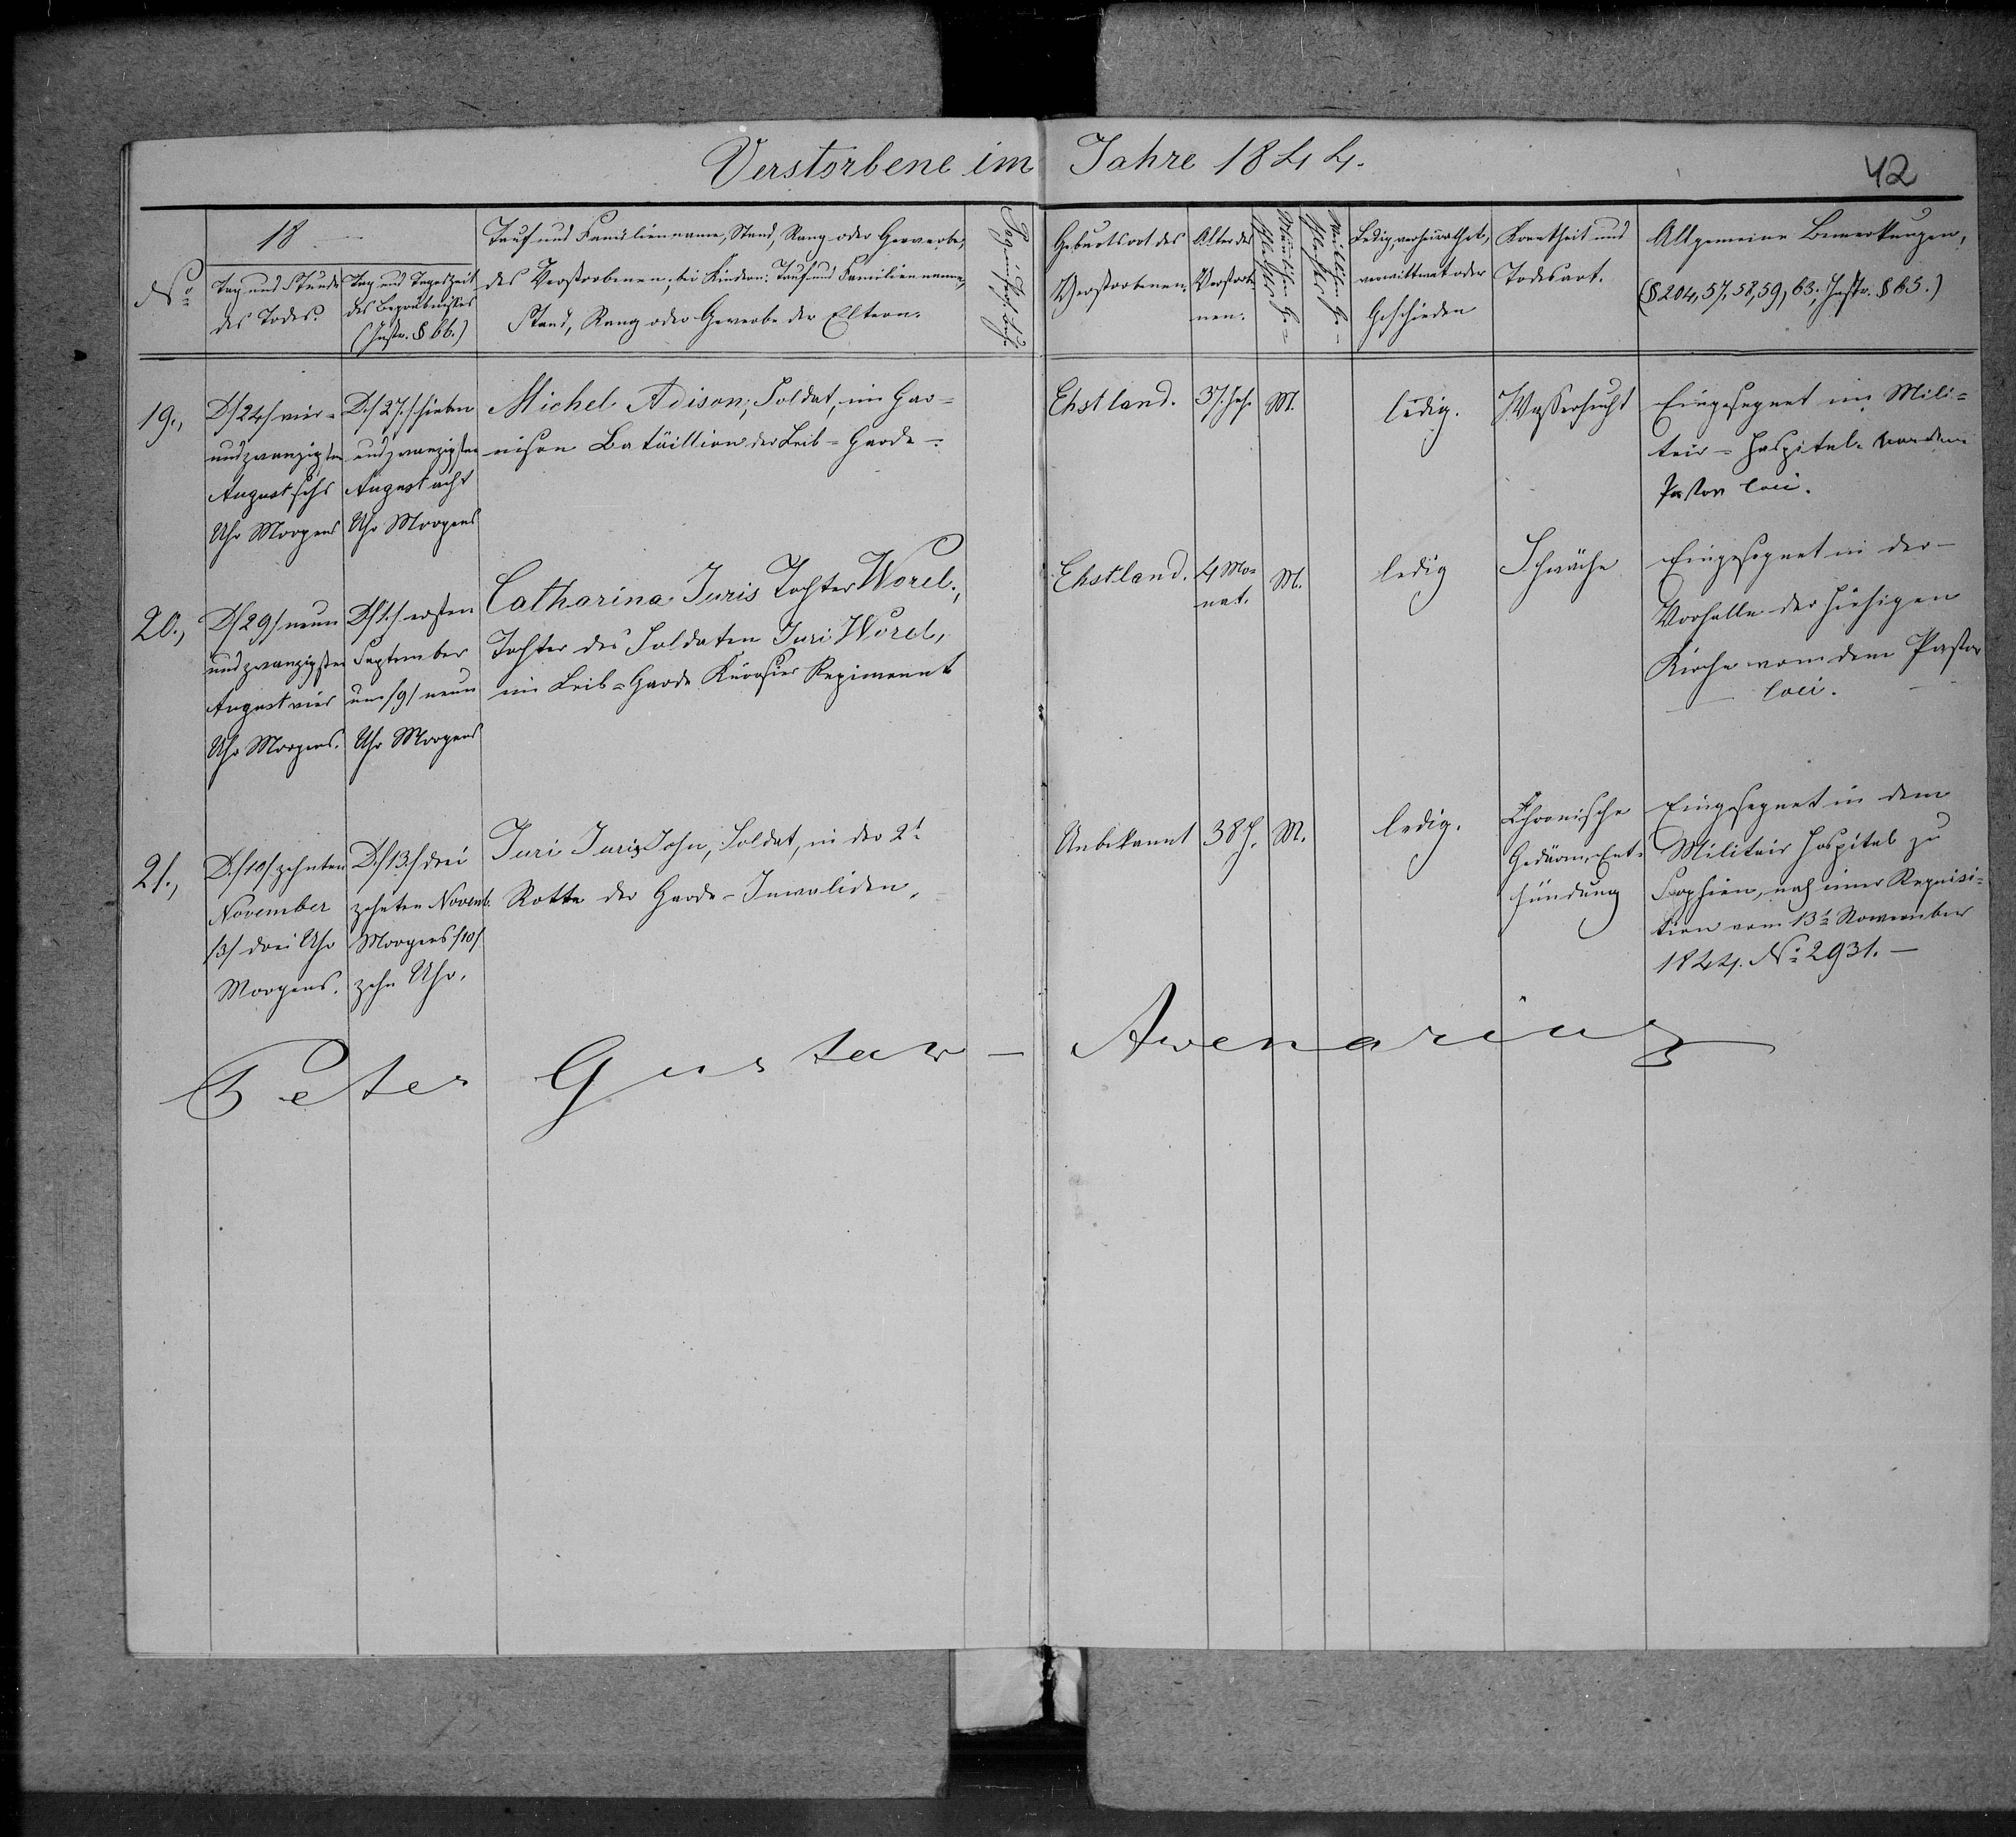 Verstorbene im Jahre 1844.
42
No
18
Tag und Stunde
des Todes.
Tag und Tageszeit
des Begräbnisses
(Instr. § 66.)
Tauf und Familienname, Stand, Rang oder Gewerbe,
des Verstorbenen; bei Kindern: Tauf und Familienname,
Stand, Rang oder Gewerbe der Eltern.
Geburtsort des
Verstorbenen.
Alter des
Verstorbe-
nen.
Männlichen Ge-
schlechts
Weiblichen Ge-
schlechts
Ledig, verheirathet,
verwittwet oder
Geschieden
Krankheit und
Todesart.
Allgemeine Bemerkungen,
(§ 204, 57, 58, 59, 63; Instr. § 65.)
19.,
D. /24/ vier-
undzwanzigsten
August sechs
Uhr Morgens
D. /27./ sieben
undzwanzigsten
August acht
Uhr Morgens
Michel Adison, Soldat, im Gar-
nison Batäillion der Leib-Garde.
Ehstland.
37. Jah.
M.
ledig.
Wassersucht
Eingesegnet im Mili-
tair-Hospitale von dem
Pastor loci.
20.,
D. /29/ neun
undzwanzigsten
August vier
Uhr Morgens.
D. /1./ ersten
September
um /9/ neun
Uhr Morgens
Catharina Juris Tochter Worel.,
Tochter des Soldaten Juri Worel,
im Leib-Garde Kürassier Regiment
Ehstland.
4 Mo-
nat.
M.
ledig
Schwäche
Eingesegnet in der
Vorhalle der hiesigen
Kirche von dem Pastor
loci.
21.,
D. /10/ zehnten
November
/3/ drei Uhr
Morgens.
D. /13./ drei
zehnten Novemb.
Morgens /10/
zehn Uhr.
Juri Juris Sohn, Soldat, in der 2t
Rotte der Garde-Invaliden.
Unbekannt
38 J.
M.
ledig.
Chronische
Gedärm-Ent-
zündung
Eingesegnet in dem
Militair Hospital zu
Sophien, nach einer Requisi-
tion vom 13t November
1844. No 2931.
Peter Gustav Avenarius